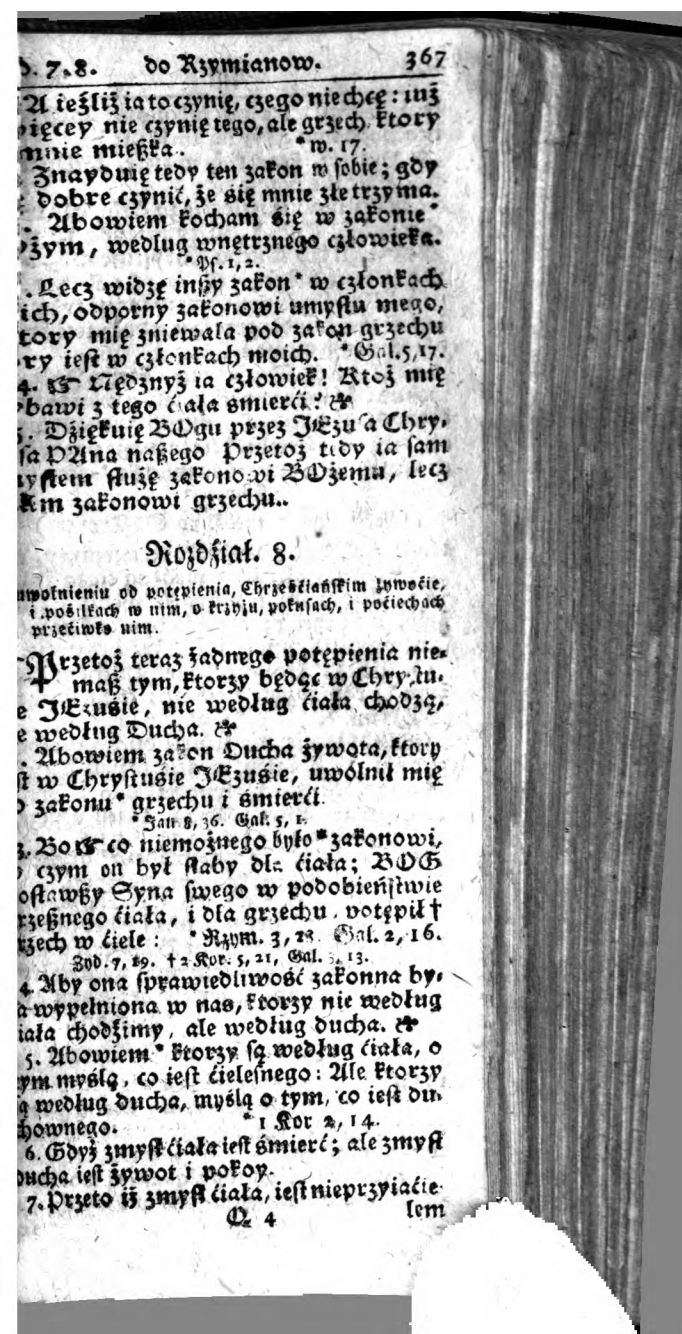 7.8. do Rzymianow. 367
A ieżliż ia to czynię, czego nie chcę: iuż
więcey nie czynię tego, ale grzech ktory
mnie mießka. *w. 17.
Znayduię tedy ten zakon w sobie; gdy
dobre czynić, że się mnie złe trzyma.
Abowiem kocham się w zakonie*
Bożym, według wnętrznego człowieka.
*Ps. 1, 2.
. Lecz widzę inßy zakon* w członkach
ich, odporny zakonowi umysłu mego,
ktory mię zniewala pod zakon grzechu
ktory iest w członkach moich. *Gal. 5, 17.
4. ☞ Nędznyż ia człowiek! Ktoż mię
wybawi z tego ćiała śmierći?
5. Dźiękuię BOgu przez JEzusa Chry-
sa PAna naßego Przetoż tedy ia sam
mysłem służę zakonowi BOżemu, lecz
zakonowi grzechu..
Rozdźiał. 8.
uwolnieniu od potępienia, Chrześćiańskim żywoćie,
i pośiłkach w nim, o krzyżu, pokusach, i poćiechach
przećiwko nim.
Przetoż teraz żadnego potępienia nie-
maß tym, ktorzy będąc w Chrystu-
e JEzuśie, nie według ćiała chodzą,
e według Ducha.
. Abowiem zakon Ducha żywota, ktory
st w Chrystuśie JEzuśie, uwolnił mię
zakonu* grzechu i śmierći.
*Jan 8, 36. Gal. 5, 1.
3. Bo ☞ co niemożnego było* zakonowi,
czym on był słaby dla ćiała; BOG
posławßy Syna swego w podobieństwie
grzeßnego ćiała, i dla grzechu, potępił†
grzech w ćiele: *Rzym. 3, Gal. 2, 16.
Żyd. 7, 19. †2 Kor. 5, 21, Gal. 3, 13.
4. Aby ona sprawiedliwość zakonna by-
a wypełniona w nas, ktorzy nie według
ćiała chodźimy, ale według ducha.
5. Abowiem* ktorzy są według ćiała, o
tym myślą, co iest ćielesnego: Ale ktorzy
są według ducha, myślą o tym, co iest du-
chownego. *1 Kor 2, 14.
6. Gdyż zmysł ćiała iest śmierć; ale zmysł
ducha iest żywot i pokoy.
7. Przeto iż zmysł ćiała, iest nieprzyiaćie-
Q 4 lem